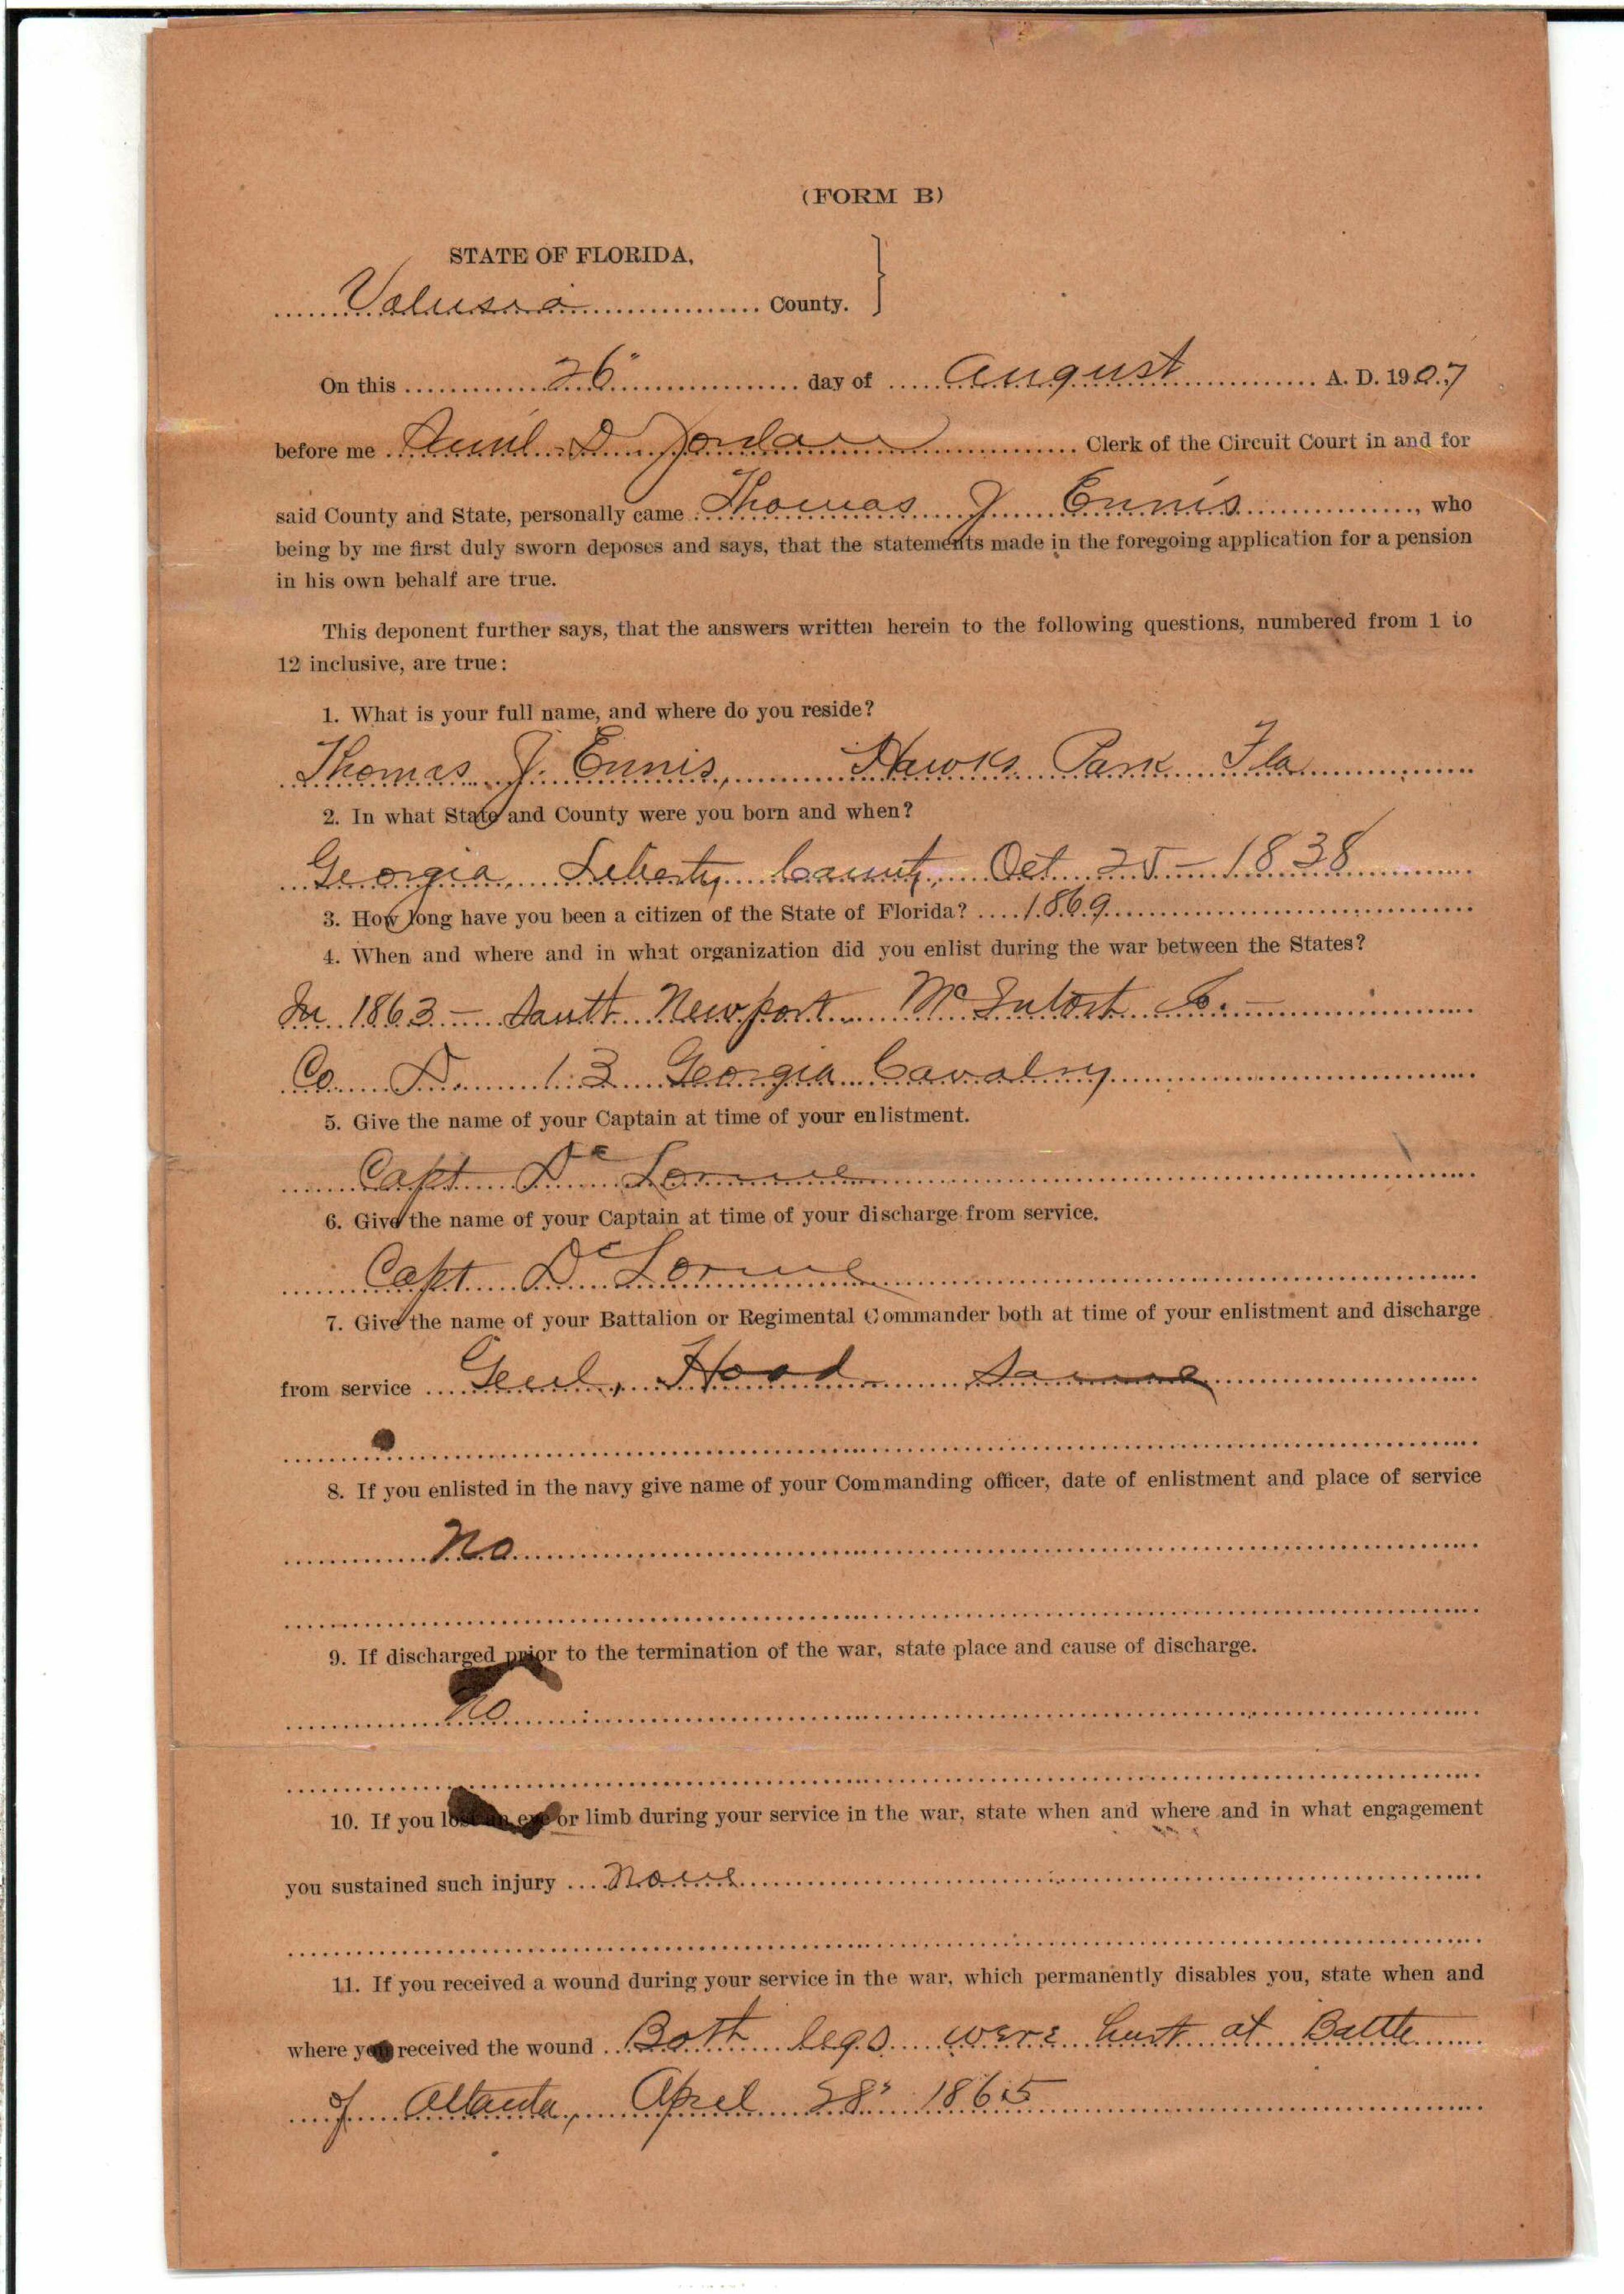 (FORM B)
STATE OF FLORIDA,
Volusia County.
On this 26" day of August A. D. 1907
before me Saml D Jordan Clerk of the Circuit Court in and for
said County and State, personally came Thomas J Ennis, who
being by me first duly sworn deposes and says, that the statements made in the foregoing application for a pension
in his own behalf are true.
This deponent further says, that the answers written herein to the following questions, numbered from 1 to
12 inclusive, are true:
1. What is your full name, and where do you reside?
Thomas J. Ennis, Hawks Park Fla
2. In what State and County were you born and when?
Georgia, Liberty County, Oct 25 – 1838
3. How long have you been a citizen of the State of Florida? 1869
4. When and where and in what organization did you enlist during the war between the States?
In 1863 – South Newport McIntosh Co. –
Co. 13 Georgia Cavalry
5. Give the name of your Captain at time of your enlistment.
Capt De Lorme
6. Give the name of your Captain at time of your discharge from service.
Capt De Lorme
7. Give the name of your Battalion or Regimental Commander both at time of your enlistment and discharge
from service Genl. Hood Same
8. If you enlisted in the navy give name of your Commanding officer, date of enlistment and place of service
No
9. If discharged prior to the termination of the war, state place and cause of discharge.
No
10. If you lost an eye or limb during your service in the war, state when and where and in what engagement
you sustained such injury None
11. If you received a wound during your service in the war, which permanently disables you, state when and
where you received the wound Both legs were hurt at Battle
of Atlanta, April 28" 1865